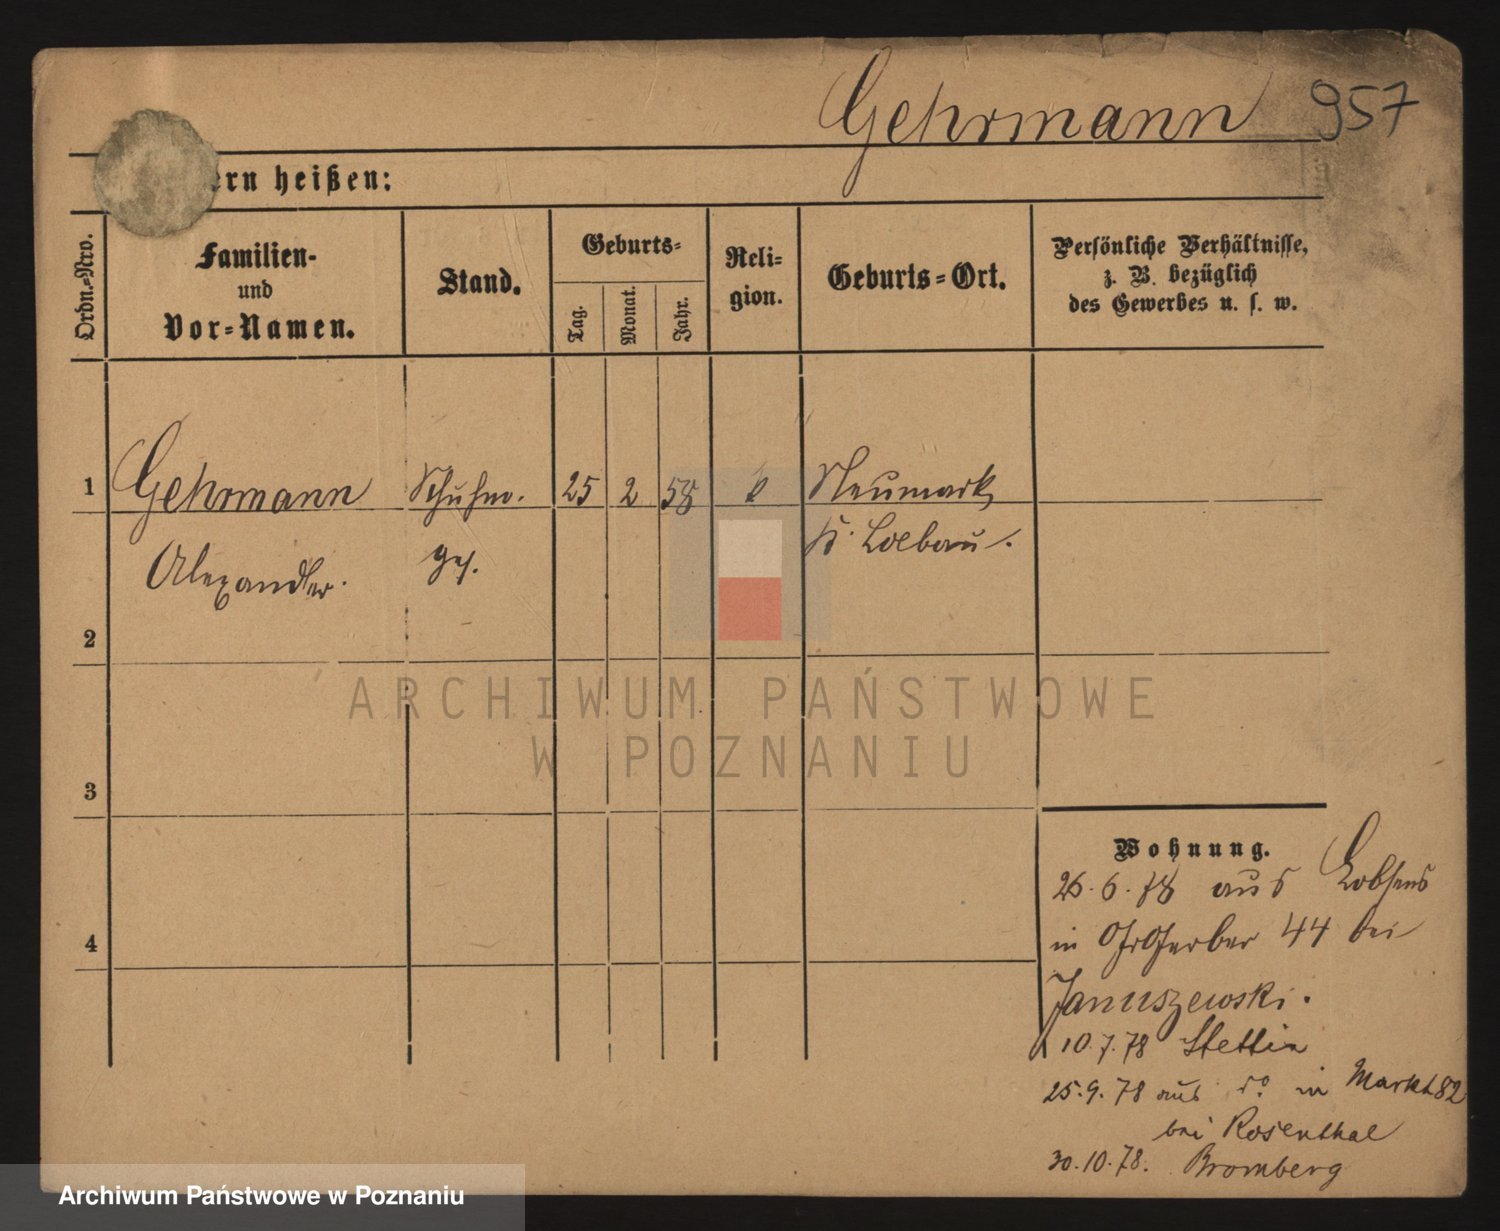 Gehrmann 957
ern heißen:
Ordn.-Nro.
Familien-
und
Vor-Namen.
Stand.
Geburts-
Tag.
Monat.
Jahr.
Reli-
gion.
Geburts-Ort.
Persönliche Verhältnisse,
z. B. bezüglich
des Gewerbes u. s. w.
1 Gehrmann Schuhm. 25 2 58 k Neumark
Alexander. Ges. Kr. Loebau.
2
3
4
Wohnung.
26.6.78 aus Lobsens
in Gr Gerber 44 bei
Januszewski.
10.7.78 Stettin
25.9.78 aus do in Markt 82
bei Rosenthal
30.10.78. Bromberg
ARCHIWUM PAŃSTWOWE
W POZNANIU
Archiwum Państwowe w Poznaniu